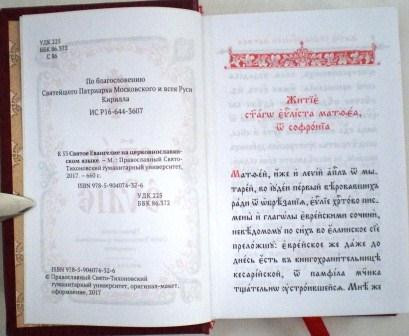 УДК 225
ББК 86.372
С 86
По благословению
Святейшего Патриарха Московского и всея Руси
Кирилла
ИС Р16-644-3607
Е 33 Святое Евангелие на церковнославян-
ском языке. – М.: Православный Свято-
Тихоновский гуманитарный университет,
2017. – 660 с.
ISBN 978-5-904074-32-6
УДК 225
ББК 86.372
ISBN 978-5-904074-32-6
© Православный Свято-Тихоновский
гуманитарный университет, оригинал-макет,
оформление, 2017
Житїе
ст҃агѡ еѵⷢ҇лїста матѳеа,
ѿ софронїа
Матѳей, и҆́же и҆ леѵі́й а҆пⷭ҇лъ ѿ мы-
тарей, во і҆ꙋде́и пе́рвый вѣ́ровавшихъ
ра́ди ѿ ѡ҆брѣ́занїѧ, є҆ѵⷢ҇лїе хрⷭ҇то́во пи́с-
мены̀ и҆ глаго́лы є҆вре́йскими сочинѝ,
невѣ́домомꙋ по си́хъ во є҆́ллинское сїѐ
прело́жшꙋ: є҆вре́йское же да́же до
дне́сь є҆́сть въ книгохрани́тельницѣ
кесарі́йской, ю҆́же памфі́лъ мч҃ика
тща́тельнѡ ᲂу҆стро́ившейсѧ. Мнѣ́ же